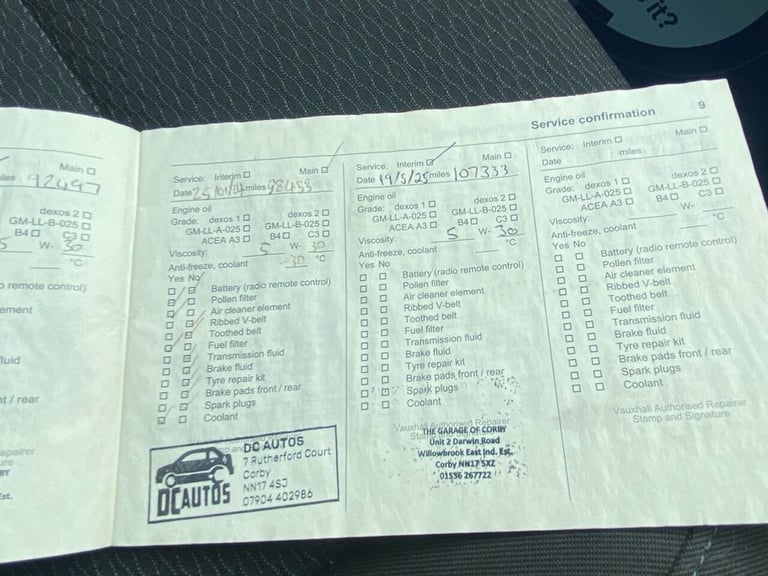 it?
Service confirmation 9
Main
iles 92497
dexos 2
GM-LL-B-025
B4 C3
5 W- 30
°C
o remote control)
ement
fluid
nt / rear
epairer
ure
BY
Est.
Service: Interim Main
Date 25/01/24 miles 98433
Engine oil
Grade: dexos 1 dexos 2
GM-LL-A-025 GM-LL-B-025
ACEA A3 B4 C3
Viscosity: 5 W- 30
Anti-freeze, coolant -30 °C
Yes No
Battery (radio remote control)
Pollen filter
Air cleaner element
Ribbed V-belt
Toothed belt
Fuel filter
Transmission fluid
Brake fluid
Tyre repair kit
Brake pads front / rear
Spark plugs
Coolant
DC AUTOS
7 Rutherford Court
Corby
NN17 4SJ
07904 402986
DCAUTOS
Service: Interim Main
Date 19/5/25 miles 107333
Engine oil
Grade: dexos 1 dexos 2
GM-LL-A-025 GM-LL-B-025
ACEA A3 B4 C3
Viscosity: 5 W- 30
Anti-freeze, coolant °C
Yes No
Battery (radio remote control)
Pollen filter
Air cleaner element
Ribbed V-belt
Toothed belt
Fuel filter
Transmission fluid
Brake fluid
Tyre repair kit
Brake pads front / rear
Spark plugs
Coolant
Vauxhall Authorised Repairer
THE GARAGE OF CORBY
Unit 2 Darwin Road
Willowbrook East Ind. Est.
Corby NN17 5XZ
01536 267722
Service: Interim Main
Date miles
Engine oil
Grade: dexos 1 dexos 2
GM-LL-A-025 GM-LL-B-025
ACEA A3 B4 C3
Viscosity: W-
Anti-freeze, coolant °C
Yes No
Battery (radio remote control)
Pollen filter
Air cleaner element
Ribbed V-belt
Toothed belt
Fuel filter
Transmission fluid
Brake fluid
Tyre repair kit
Brake pads front / rear
Spark plugs
Coolant
Vauxhall Authorised Repairer
Stamp and Signature